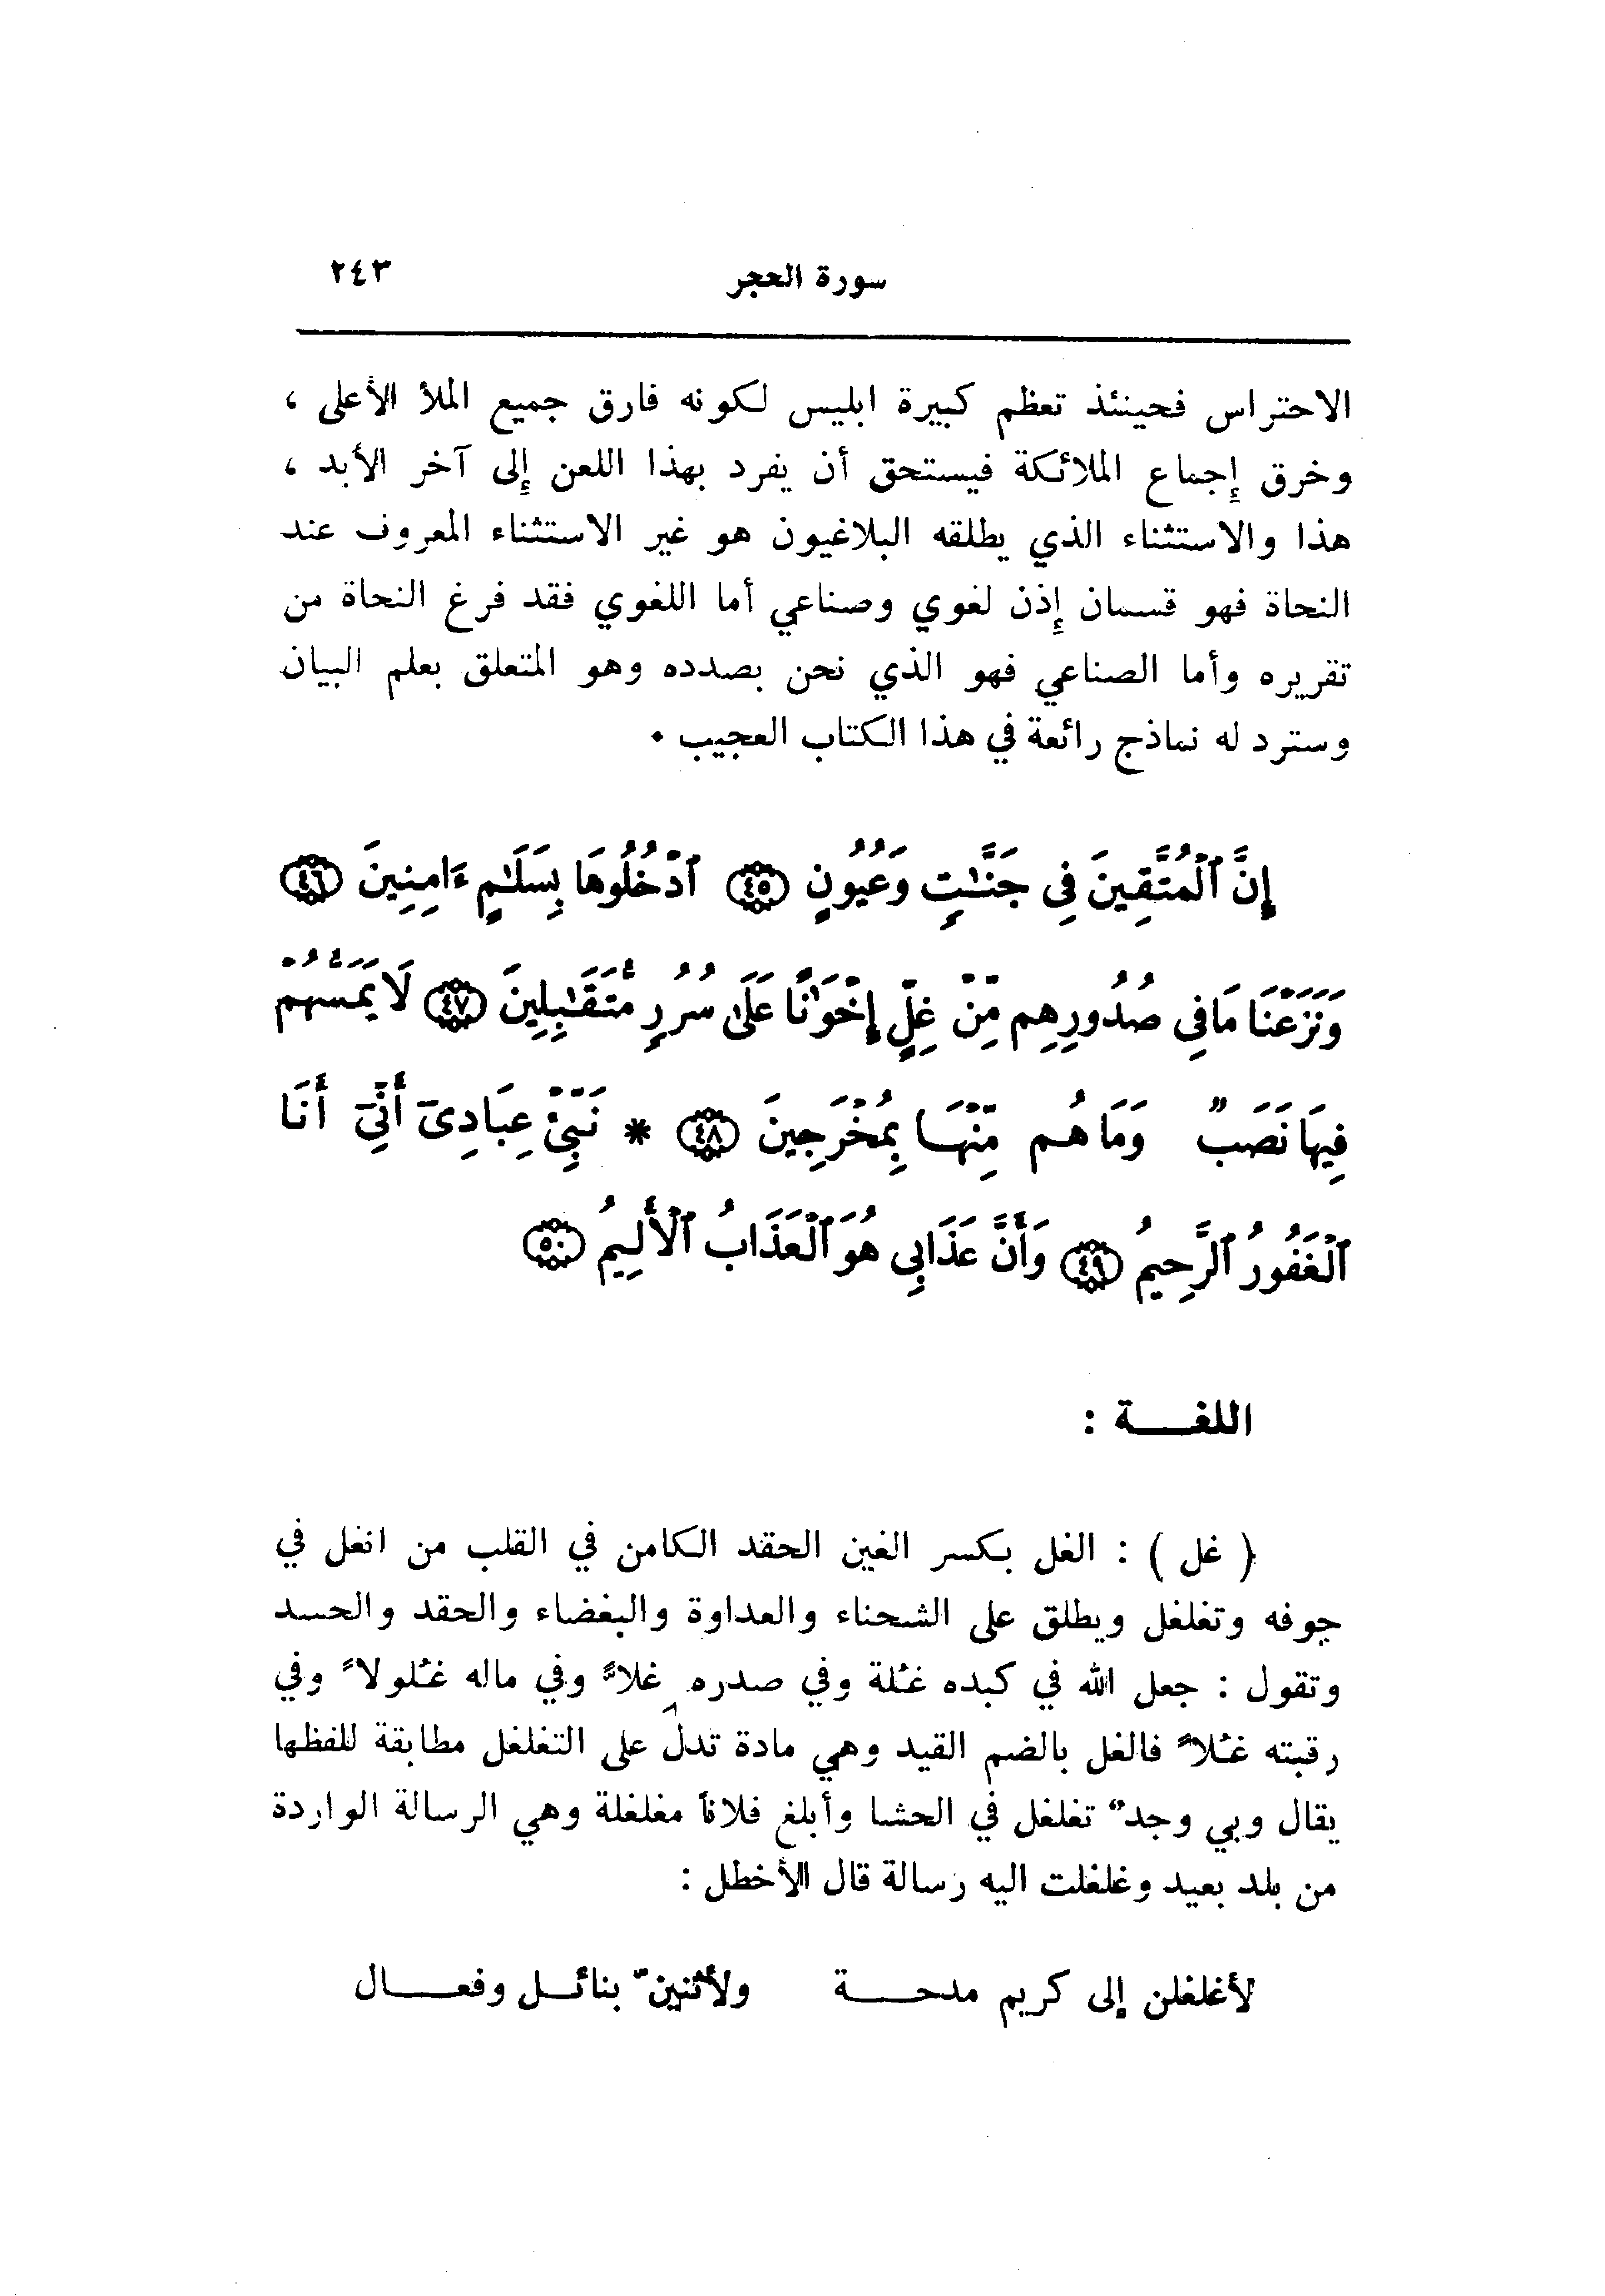 سورة الحجر ٢٤٣
الاحتراس فحينئذ تعظم كبيرة ابليس لكونه فارق جميع الملأ الأعلى ،
وخرق إجماع الملائكة فيستحق أن يفرد بهذا اللعن إلى آخر الأبد ،
هذا والاستثناء الذي يطلقه البلاغيون هو غير الاستثناء المعروف عند
النحاة فهو قسمان إذن لغوي وصناعي أما اللغوي فقد فرغ النحاة من
تقريره وأما الصناعي فهو الذي نحن بصدده وهو المتعلق بعلم البيان
وسترد له نماذج رائعة في هذا الكتاب العجيب .
إِنَّ ٱلْمُتَّقِينَ فِى جَنَّـٰتٍ وَعُيُونٍ ﴿٤٥﴾ ٱدْخُلُوهَا بِسَلَـٰمٍ ءَامِنِينَ ﴿٤٦﴾
وَنَزَعْنَا مَا فِى صُدُورِهِم مِّنْ غِلٍّ إِخْوَٰنًا عَلَىٰ سُرُرٍ مُّتَقَـٰبِلِينَ ﴿٤٧﴾ لَا يَمَسُّهُمْ
فِيهَا نَصَبٌ وَمَا هُم مِّنْهَا بِمُخْرَجِينَ ﴿٤٨﴾ * نَبِّئْ عِبَادِىٓ أَنِّىٓ أَنَا
ٱلْغَفُورُ ٱلرَّحِيمُ ﴿٤٩﴾ وَأَنَّ عَذَابِى هُوَ ٱلْعَذَابُ ٱلْأَلِيمُ ﴿٥٠﴾
اللغـــة :
( غل ) : الغل بكسر الغين الحقد الكامن في القلب من انغل في
جوفه وتغلغل ويطلق على الشحناء والعداوة والبغضاء والحقد والحسد
وتقول : جعل الله في كبده غُلة وفي صدره غِلاً وفي ماله غُلولاً وفي
رقبته غُلاً فالغل بالضم القيد وهي مادة تدل على التغلغل مطابقة للفظها
يقال وبي وجدٌ تغلغل في الحشا وأبلغ فلاناً مغلغلة وهي الرسالة الواردة
من بلد بعيد وغلغلت اليه رسالة قال الأخطل :
لأغلغلن إلى كريم مدحـــة ولأثنينّ بنائـــل وفعـــال